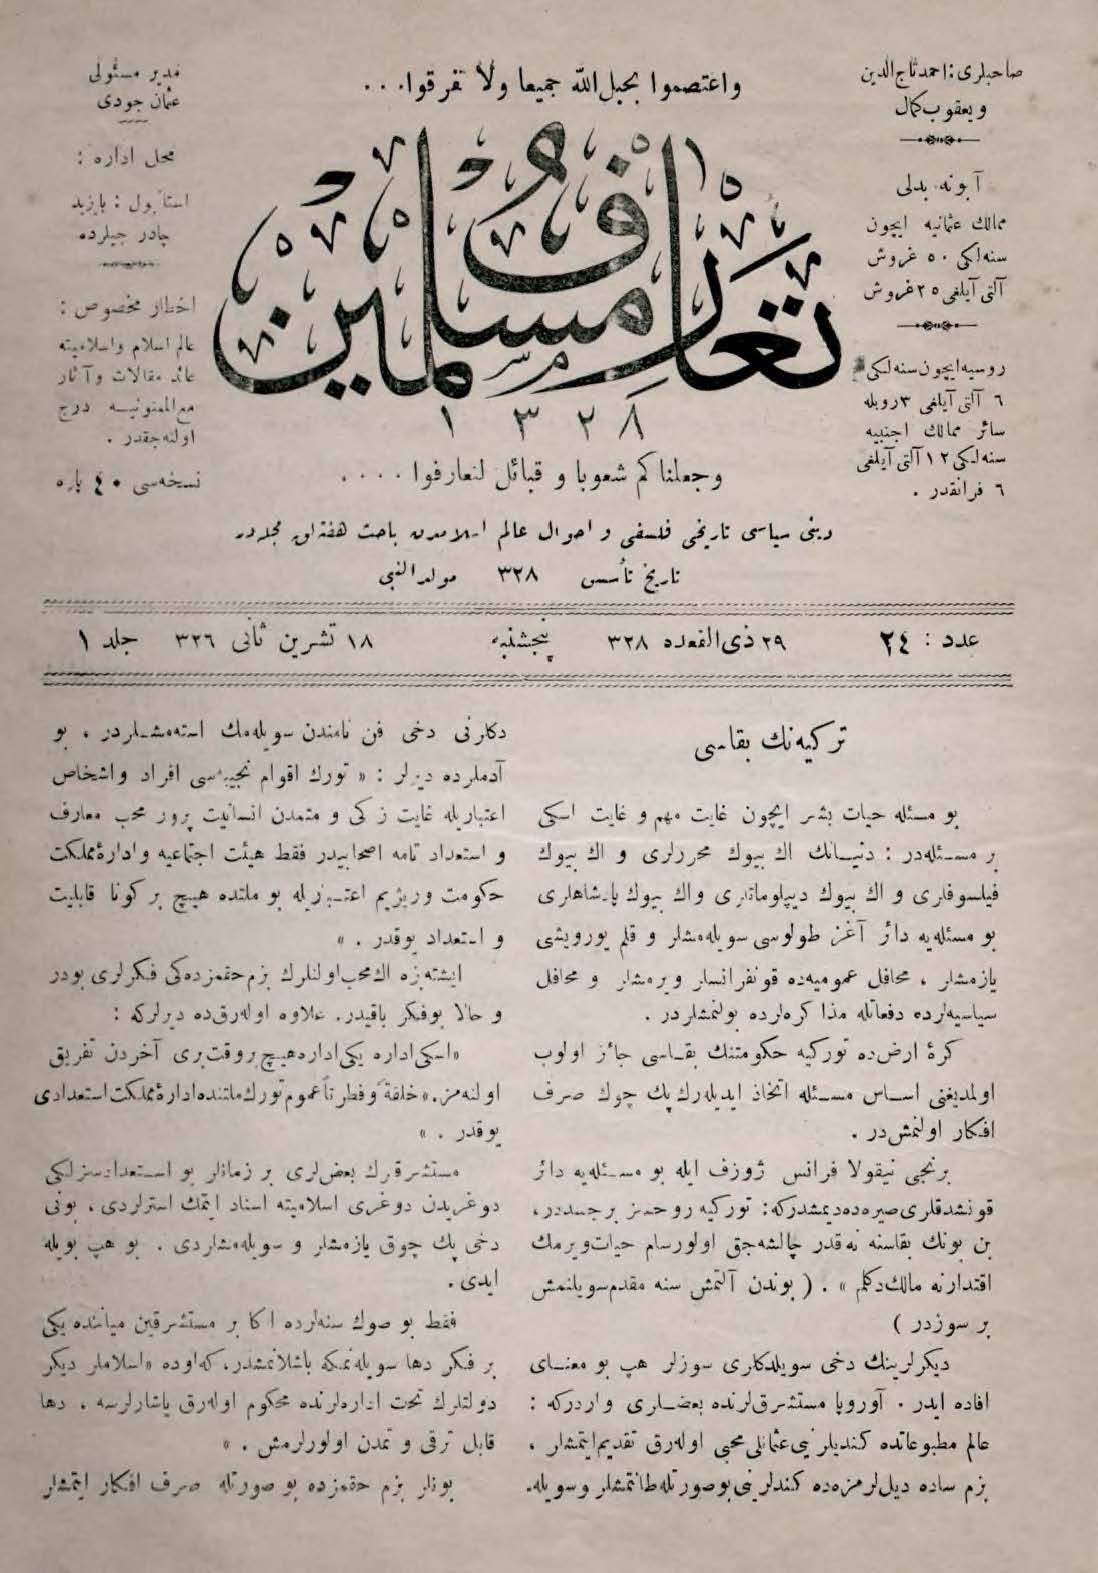 صاحبلری : احمد تاج الدین
و یعقوب کمال
آبونه بدلی
ممالك عثمانیه ایچون
سنه‌لكی ٥٠ غروش
آلتی آیلغی ٢٥ غروش
روسیه ایچون سنه‌لكی
٦ آلتی آیلغی ٣ روبله
سائر ممالك اجنبیه
سنه‌لكی ١٢ آلتی آیلغی
٦ فرانقدر .
واعتصموا بحبل الله جمیعا ولا تفرقوا...
تعارف مسلمین
١٣٢٨
وجعلناكم شعوبا و قبائل لتعارفوا ....
دینی سیاسی تاریخی فلسفی و احوال عالم اسلامدن باحث هفته‌لق مجله‌در
تاریخ تأسس ٣٢٨ مولد النبی
مدیر مسئولی
عثمان جودی
محل اداره :
استانبول : بایزید
چادر جیلرده
اخطار مخصوص :
عالم اسلام واسلامیته
عائد مقالات و آثار
مع الممنونیـه درج
اولنه‌جقدر .
نسخه‌سی ٤٠ پاره
عدد : ٢٤ ٢٩ ذی القعده ٣٢٨ پنجشنبه ١٨ تشرین ثانی ٣٢٦ جلد ١
تركیه‌نك بقاسی
بو مسئله حیات بشر ایچون غایت مهم و غایت اسكی
بر مسـئله‌در : دنیـانك اك بیوك محررلری و اك بیوك
فیلسوفلری و اك بیوك دیپلوماتلری واك بیوك پادشاهلری
بو مسئله‌یه دائر آغز طولوسی سویله‌مشلر و قلم یورویشی
یازمشلر ، محافل عمومیه‌ده قونفرانسلر ویرمشلر و محافل
سیاسیه‌لرده دفعاتله مذا كره‌لرده بولنمشلردر .
كرۀ ارض‌ده توركیه حكومتنك بقـاسی جائز اولوب
اولمدیغنی اسـاس مسـئله اتخاذ ایدیله‌رك پك چوك صرف
افكار اولنمش‌در .
برنجی نیقولا فرانس ژوزف ایله بو مسـئله‌یه دائر
قونشدقلری صیره‌ده دیمشدركه : توركیه روحسز برجسددر،
بن بونك بقاسنه نه‌قدر چالشه‌جق اولورسام حیات ویرمك
اقتدارنه مالك دكلم » . ( بوندن آلتمش سنه مقدم سویلنمش
بر سوزدر )
دیكرلرینك دخی سویلدكلری سوزلر هپ بو معنـای
افاده ایدر . آوروپا مستشرق‌لرنده بعضـلری واردركه :
عالم مطبوعاتده كندیلرنی عثمانلی محبی اوله‌رق تقدیم ایتمشلر ،
بزم ساده دیل‌لرمزه‌ده كندلرنی بو صورتله طانتمشلر وسویله‌
دكلرنی دخی فن نامندن سویله‌مك استه‌مشـلردر ، بو
آدملرده دیرلر : « تورك اقوام نجیبه‌سی افراد واشخاص
اعتباریله غایت زكی و متمدن انسانیت پرور محب معارف
و استعداد تامه اصحابیدر فقط هیئت اجتماعیه وادارۀ مملكت
حكومت و ریژیم اعتبـاریله بو ملتده هیچ بر كونا قابلیت
و استعداد یوقدر . »
ایشته بزه اك محب اولنلرك بزم حقمزده‌كی فكرلری بودر
و حالا بو فكر باقیدر. علاوه اوله‌رق‌ده دیرلركه :
« اسكی اداره یكی اداره هیچ بروقت بری آخردن تفریق
اولنه‌مز.» خلقةً و فطرتاً عموم تورك ملتنده ادارۀ مملكت استعدادی
یوقدر . »
مستشرقرك بعض‌لری بر زمانلر بو اسـتعدادسزلكی
دوغریدن دوغری اسلامیته اسناد ایتمك استرلردی ، بونی
دخی پك چوق یازمشلر و سویله‌مشلردی . بو هپ بویله
ایدی.
فقط بو صوك سنه‌لرده آكا بر مستشرقین میاننده یكی
بر فكر دها سویله‌نمكه باشلانمشدر. كه اوده « اسلاملر دیكر
دولتلرك تحت اداره‌لرنده محكوم اوله‌رق یاشارلرسه ، دها
قابل ترقی و تمدن اولورلرمش . »
بونلر بزم حقمزده بو صورتله صرف افكار ایتمشلر